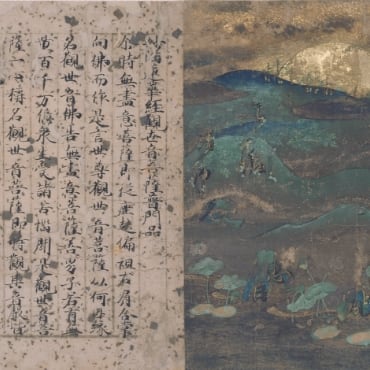 妙法蓮華經觀世音菩薩普門品
尒時無盡意菩薩即從座起偏袒右肩合掌
向佛而作是言世尊觀世音菩薩以何因緣
名觀世音佛告無盡意菩薩善男子若有無
量百千万億衆生受諸苦惱聞是觀世音菩
薩一心稱名觀世音菩薩即時觀其音聲皆